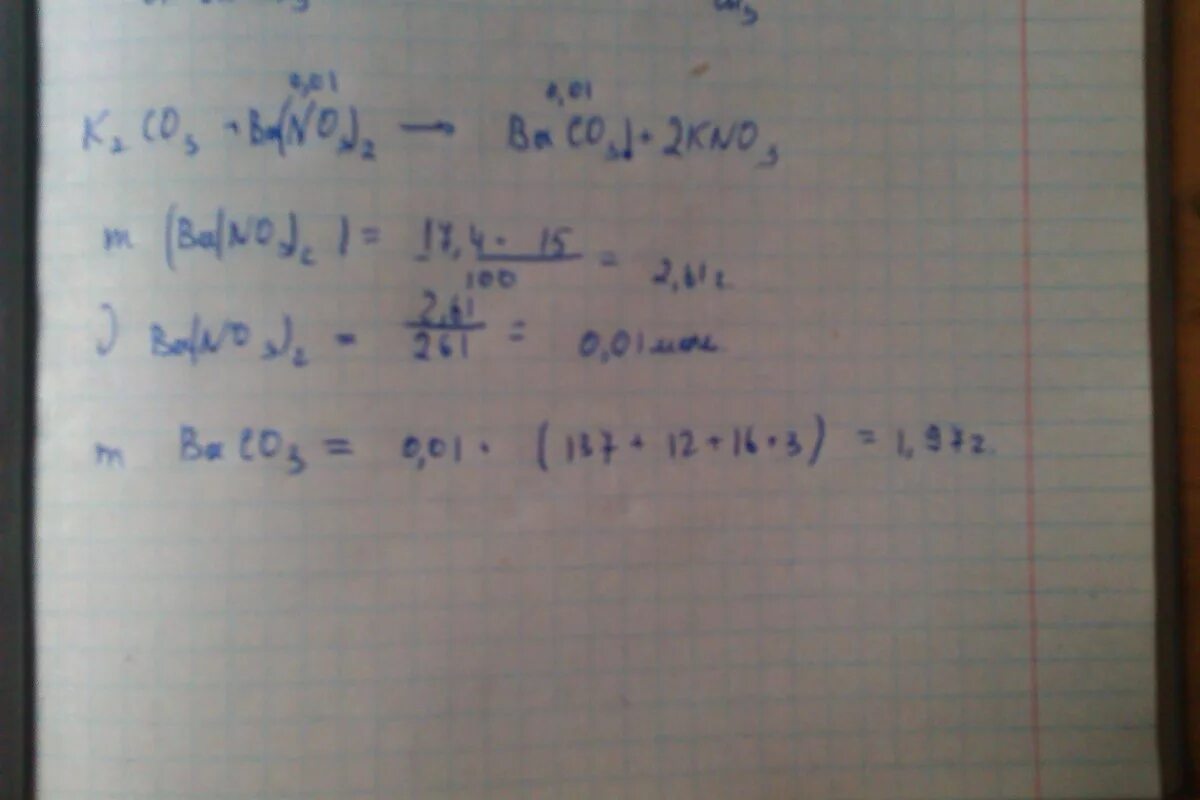 0,01 0,01
K₂CO₃ + Ba(NO₃)₂ → BaCO₃↓ + 2KNO₃
m (Ba(NO₃)₂) = 17,4 · 15 / 100 = 2,61 г.
) Ba(NO₃)₂ = 2,61 / 261 = 0,01 моль
m BaCO₃ = 0,01 · (137 + 12 + 16 · 3) = 1,97 г.